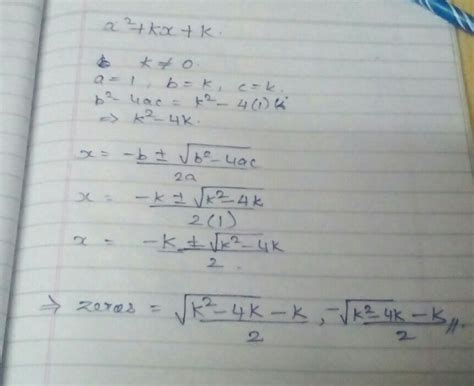 x²+kx+k.
k ≠ 0.
a=1, b=k, c=k.
b²-4ac = k²-4(1)k
⇒ k²-4k.
x = -b ± √b²-4ac / 2a
x = -k ± √k²-4k / 2(1)
x = -k ± √k²-4k / 2.
⇒ zeros = √k²-4k - k / 2 , -√k²-4k - k / 2 //.